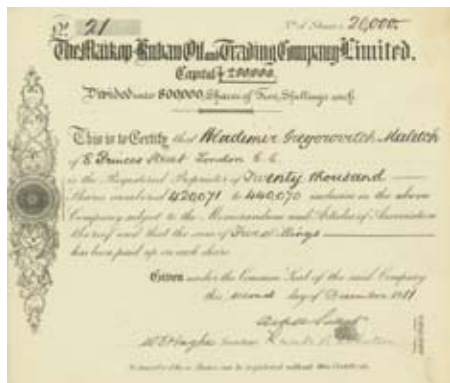 No. 21 No. of Shares 20,000
The Maikop-Kuban Oil and Trading Company Limited.
Capital £200,000.
Divided into 800,000 Shares of Five Shillings each.
This is to Certify that Wladimir Gregorovitch
of 8 Princes Street London E.C.
is the Registered Proprietor of Twenty thousand
Shares numbered 420,071 to 440,070 inclusive in the above
Company subject to the Memorandum and Articles of Association
thereof and that the sum of Five Shillings
has been paid up on each share.
Given under the Common Seal of the said Company
this second day of December 1911
No transfer of these Shares can be registered without this Certificate.